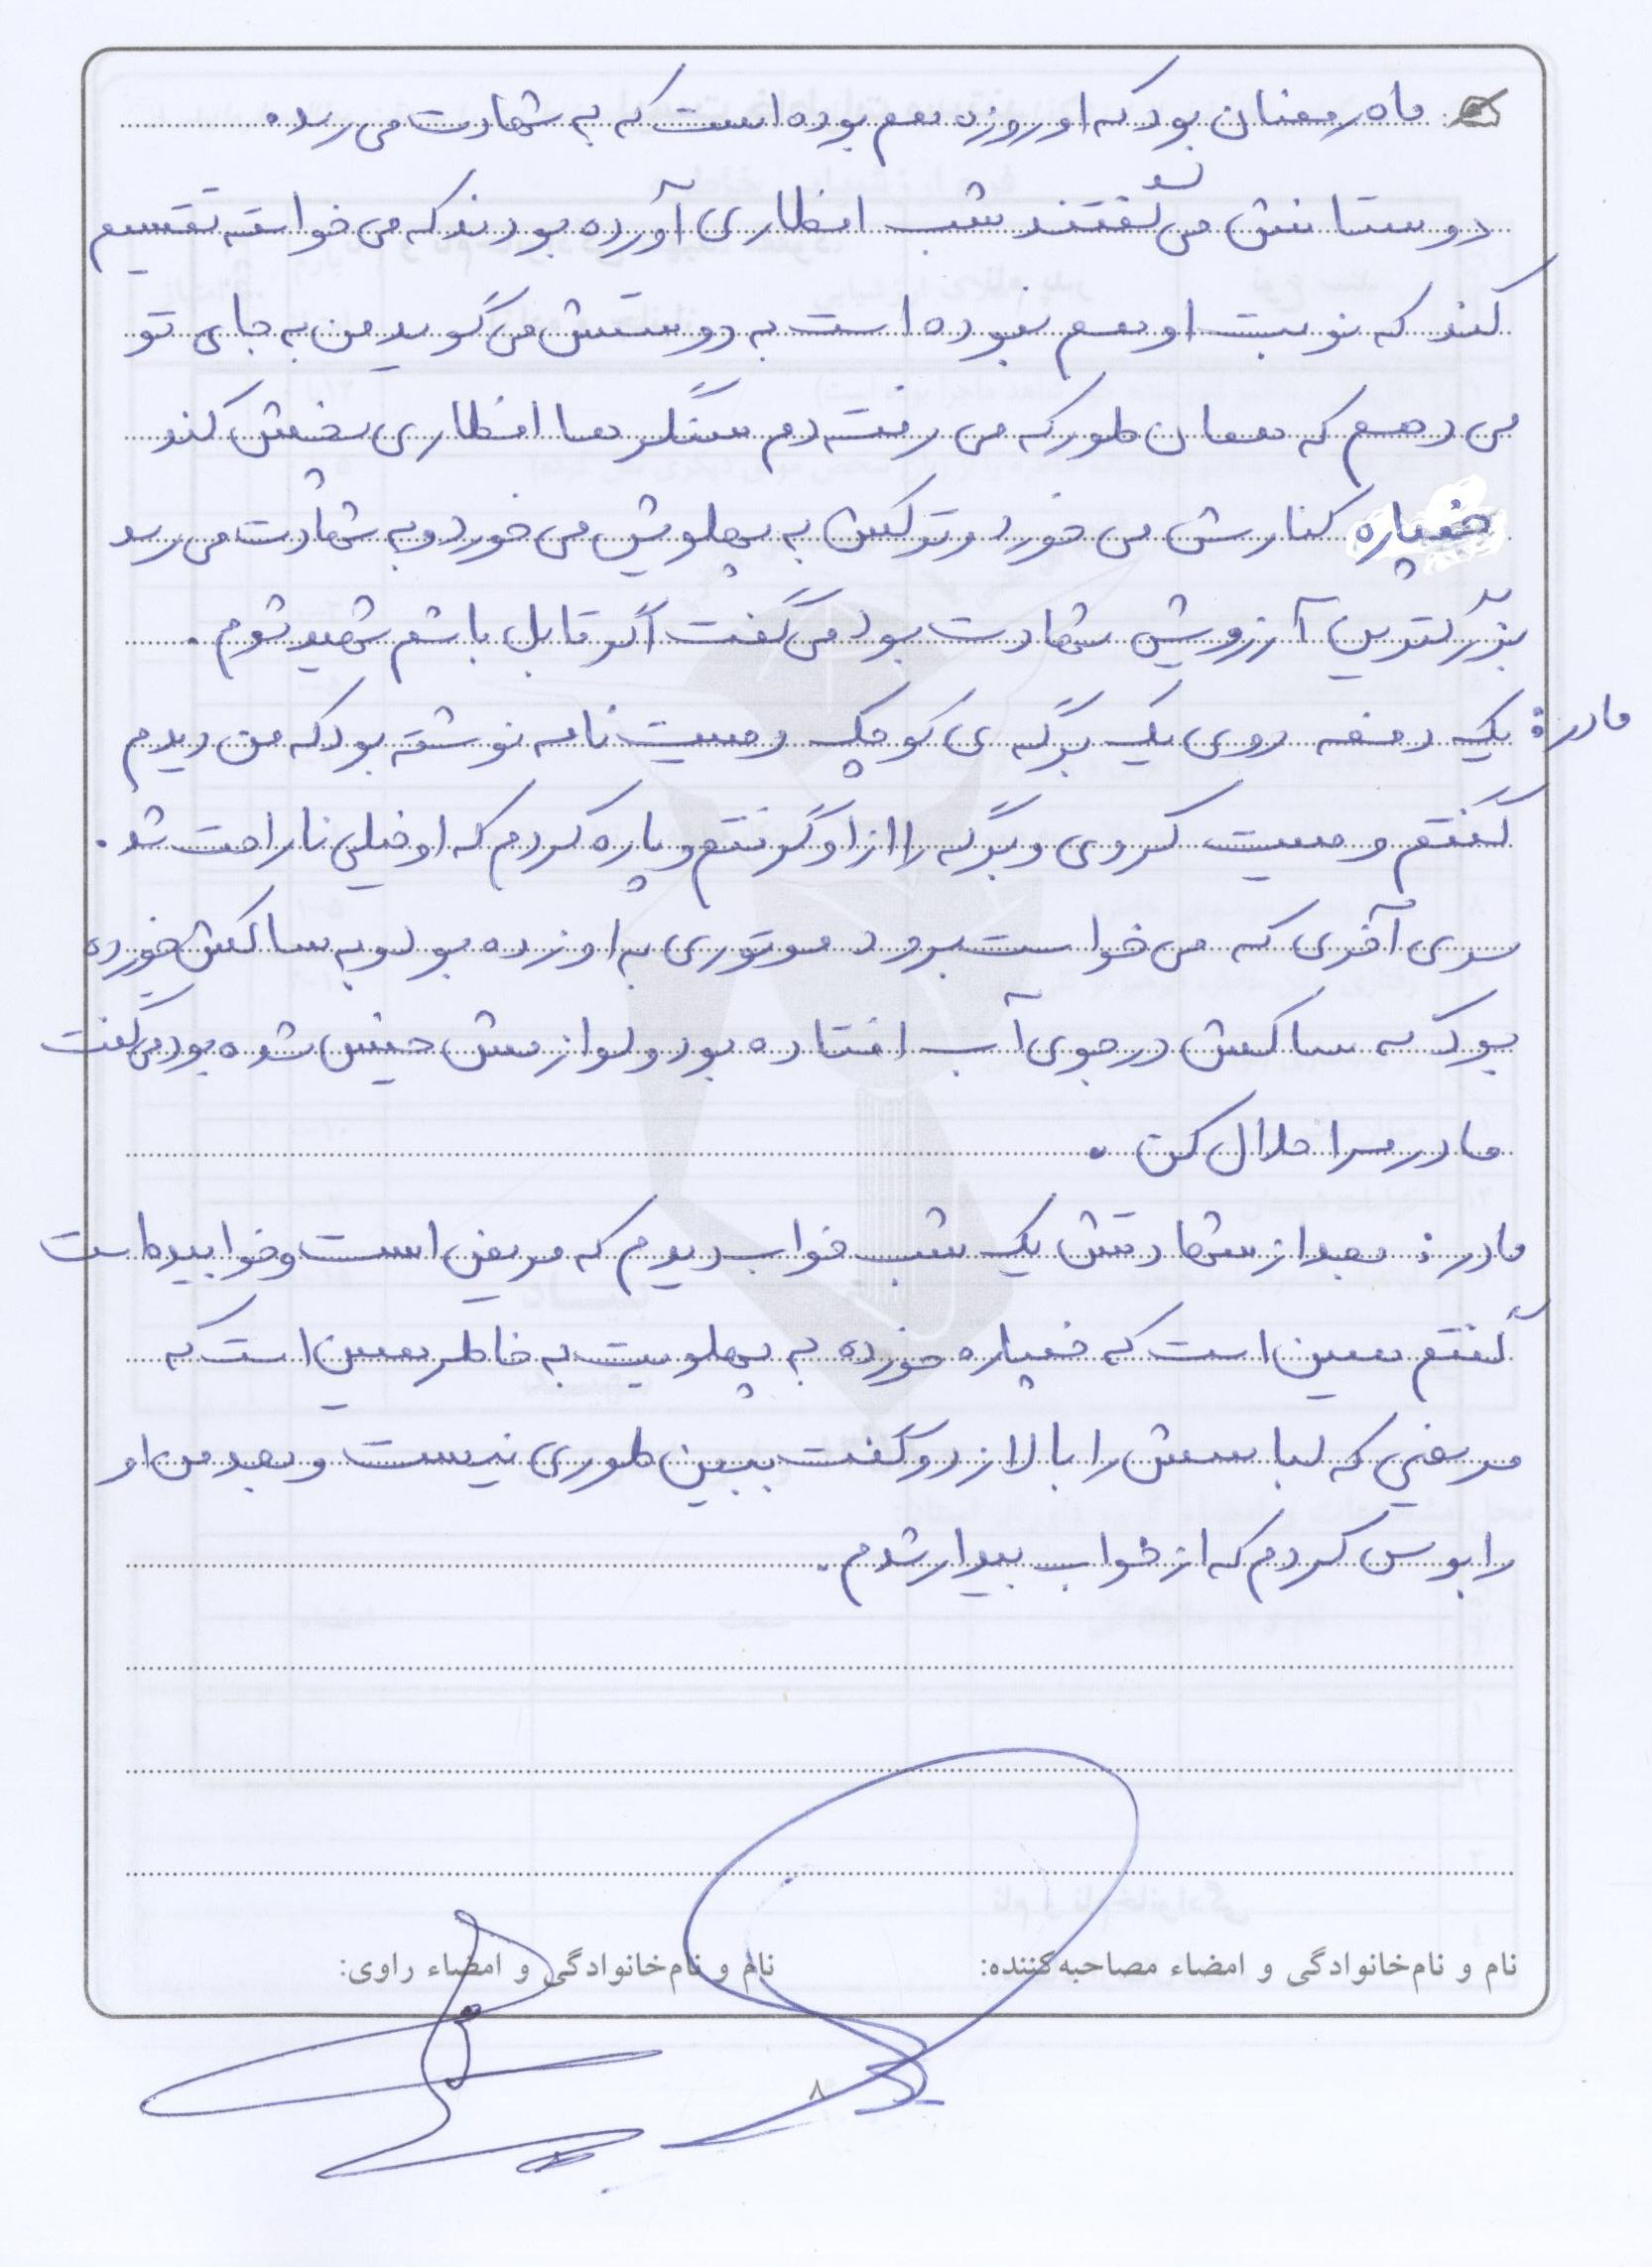 ماه رمضان بود که او روزه هم بوده است که به شهادت می رسد.
دوستانش می گفتند شب افطاری آورده بودند که می خواسته تقسیم
کند که نوبت او هم نبوده است به دوستش می گوید من به جای تو
می دهم که همان طور که می رفته دم سنگر ها افطاری پخش کند
خمپاره کنارش می خورد و ترکش به پهلویش می خورد و به شهادت می رسد
بزرگترین آرزویش شهادت بود می گفت اگر قابل باشم شهید شوم.
مادر: یک دفعه روی یک برگه ی کوچک وصیت نامه نوشته بود که من دیدم
گفتم وصیت کردی و برگه را از او گرفتم و پاره کردم که او خیلی ناراحت شد.
سری آخری که می خواست برود موتوری به او زده بود و به ساکش خورده
بود که ساکش در جوی آب افتاده بود و لوازمش خیس شده بود می گفت
مادر مرا حلال کن.
مادر: بعد از شهادتش یک شب خواب دیدم که مریض است و خوابیده است
گفتم همین است که خمپاره خورده به پهلویت به خاطر همین است که
مریضی که لباسش را بالا زد و گفت ببین طوری نیست و بعد من او
را بوس کردم که از خواب بیدار شدم.
نام و نام‌خانوادگی و امضاء مصاحبه‌کننده: نام و نام‌خانوادگی و امضاء راوی:
۸